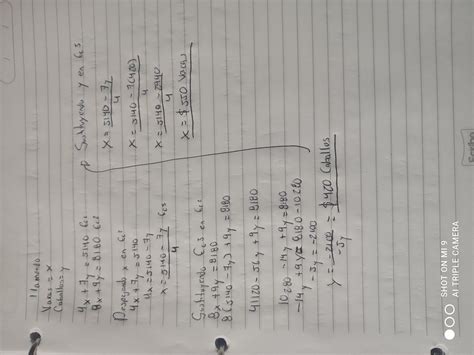 Llamando
Vacas = x
Caballos = y
4x + 7y = 5140 Ec1
8x + 9y = 8180 Ec2
Despejando x en Ec1
4x + 7y = 5140
4x = 5140 - 7y
x = 5140 - 7y Ec3
4
Sustituyendo Ec3 en Ec2
8x + 9y = 8180
8(5140 - 7y) + 9y = 8180
4
41120 - 56y + 9y = 8180
4
10280 - 14y + 9y = 8180
-14y + 9y = 8180 - 10280
-5y = -2100
y = -2100 = $ 420 Caballos
-5y
Sustituyendo y en Ec3
x = 5140 - 7y
4
x = 5140 - 7(420)
4
x = 5140 - 2940
4
x = $ 550 Vacas
SHOT ON MI 9
AI TRIPLE CAMERA